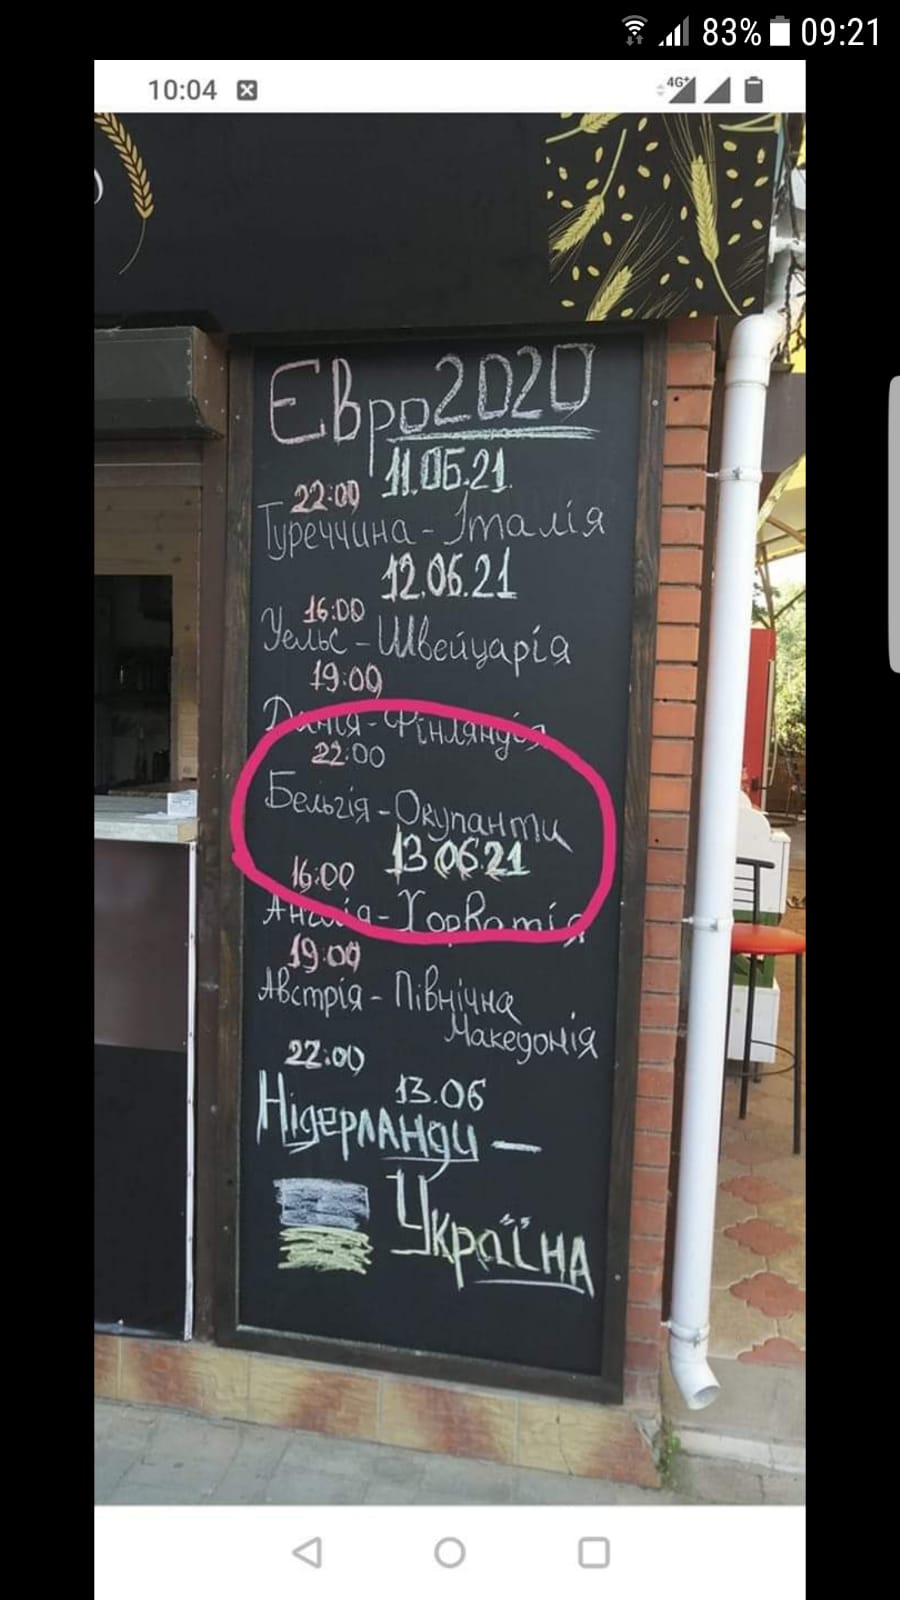 83% 09:21
10:04 4G+
Євро2020
11.06.21
22:00
Туреччина - Італія
12.06.21
16:00
Уельс - Швейцарія
19:00
Данія - Фінляндія
22:00
Бельгія - Окупанти
13 06 21
16:00
Англія - Хорватія
19:00
Австрія - Північна
Македонія
22:00
13.06
Нідерланди -
Україна